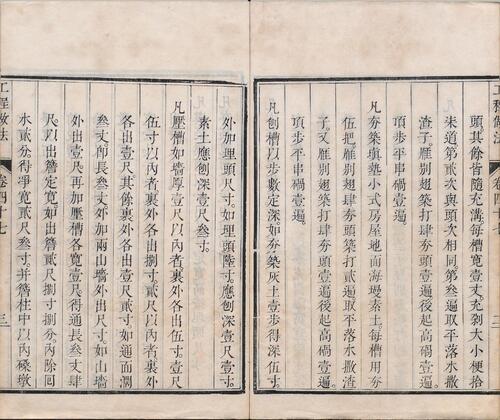 頭其餘皆隨充溝每槽寬壹丈充剁大小梗拾
硪道第貳次與頭次相同第叁遍取平落水撒
渣子雁別翅築打肆夯頭壹遍後起高硪壹遍
頂步平串硪壹遍
凡夯築塡墊小式房屋地面海墁素土每槽用夯
伍把雁別翅肆夯頭築打貳遍取平落水撒渣
子又雁別翅築打肆夯頭壹遍後起高硪壹遍
頂步平串硪壹遍
凡刨槽以步數定深如夯築灰土壹步得深伍寸
外加埋頭尺寸如埋頭陸寸應刨深壹尺壹寸
素土應刨深壹尺叁寸
凡壓槽如墻厚壹尺以內者裏外各出伍寸壹尺
伍寸以內者裏外各出捌寸貳尺以內者裏外
各出壹尺其餘裏外各出壹尺貳寸如通面濶
叁丈卽長叁丈外加兩山墻外出尺寸如山墻
外出壹尺再加壓槽各寬壹尺得通長叁丈肆
尺以出簷定寬如出簷貳尺肆寸叁分內除回
水貳分得凈寬貳尺叁寸并簷柱中以內磉墩
工程做法
卷四十七
三
工程做法
卷四十七
二